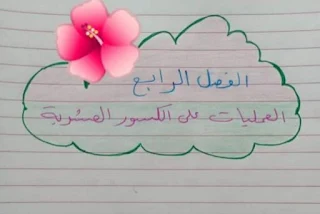 الفصل الرابع
العمليات على الكسور العشرية